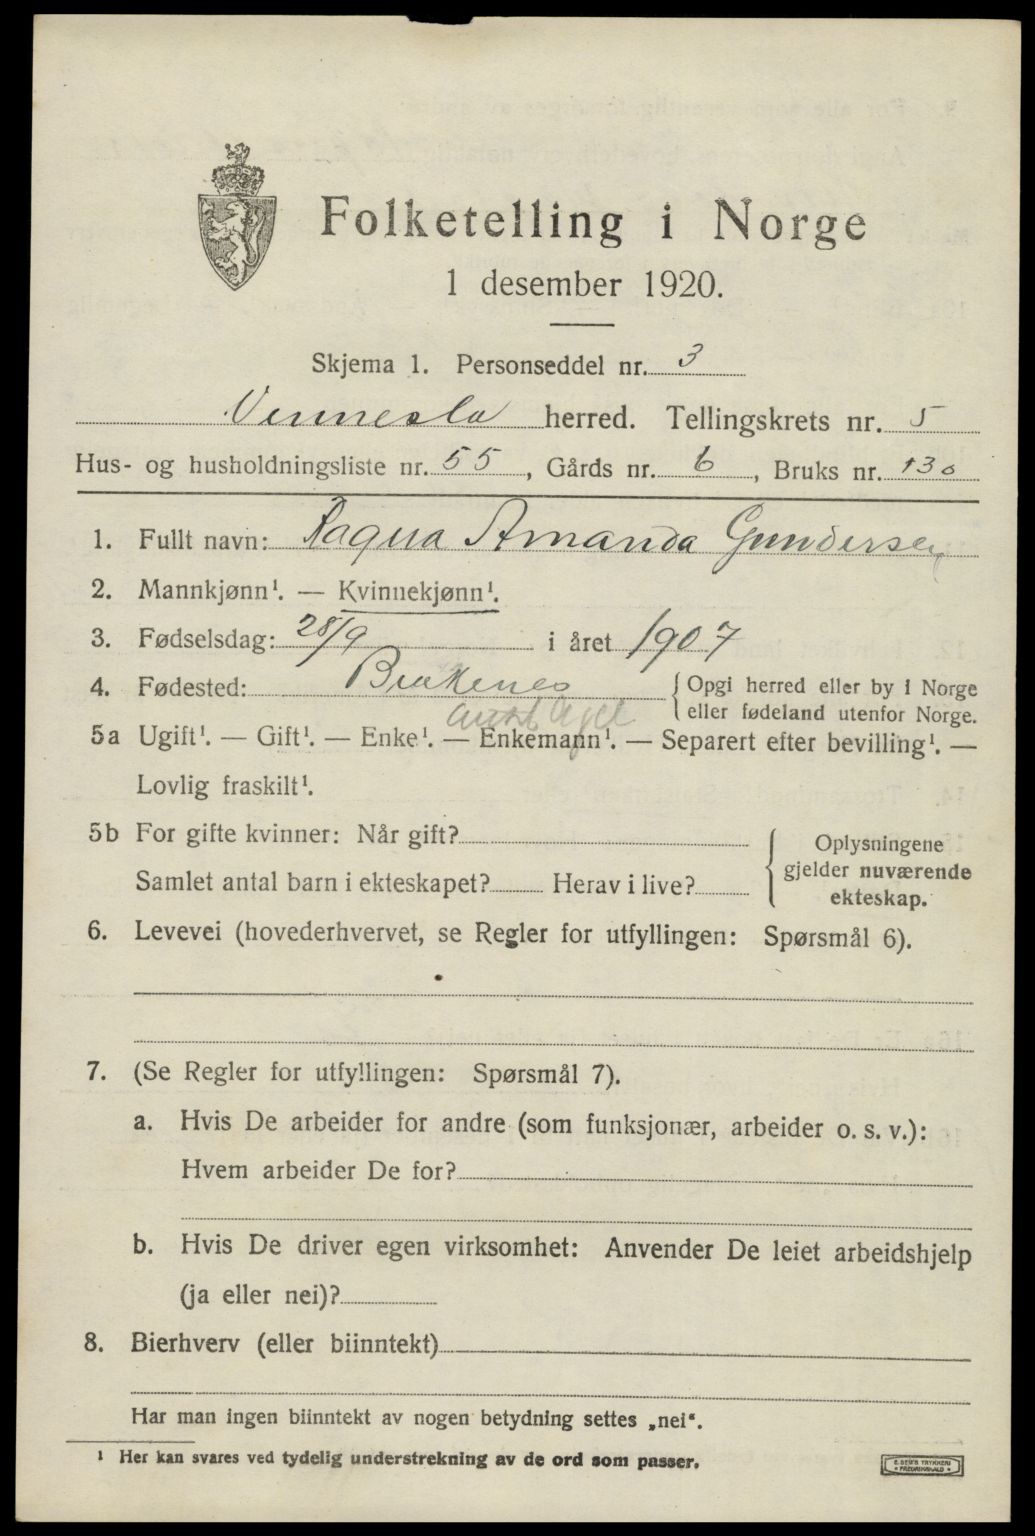 Folketelling i Norge
1 desember 1920.
Skjema 1. Personseddel nr. 3
Vennesla herred. Tellingskrets nr. 5
Hus- og husholdningsliste nr. 55, Gårds nr. 6, Bruks nr. 130
1. Fullt navn: Ragna Amanda Gundersen
2. Mannkjønn¹. — Kvinnekjønn¹.
3. Fødselsdag: 28/9 i året 1907
4. Fødested: Birkenes { Opgi herred eller by i Norge
eller fødeland utenfor Norge.
Aust Agd
5a Ugift¹. — Gift¹. — Enke¹. — Enkemann¹. — Separert efter bevilling¹. —
Lovlig fraskilt¹.
5b For gifte kvinner: Når gift?
Samlet antal barn i ekteskapet? Herav i live?
{ Oplysningene
gjelder nuværende
ekteskap.
6. Levevei (hovederhvervet, se Regler for utfyllingen: Spørsmål 6).
7. (Se Regler for utfyllingen: Spørsmål 7).
a. Hvis De arbeider for andre (som funksjonær, arbeider o. s. v.):
Hvem arbeider De for?
b. Hvis De driver egen virksomhet: Anvender De leiet arbeidshjelp
(ja eller nei)?
8. Bierhverv (eller biinntekt)
Har man ingen biinntekt av nogen betydning settes „nei“.
¹ Her kan svares ved tydelig understrekning av de ord som passer.